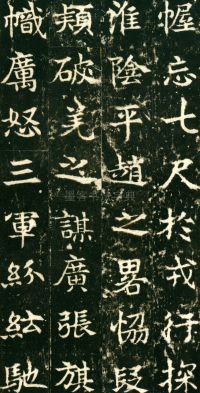 幄忘七尺於戎行探
淮陰平趙之畧恊段
熲破羌之謀廣張旗
幟厲怒三軍紛紜馳